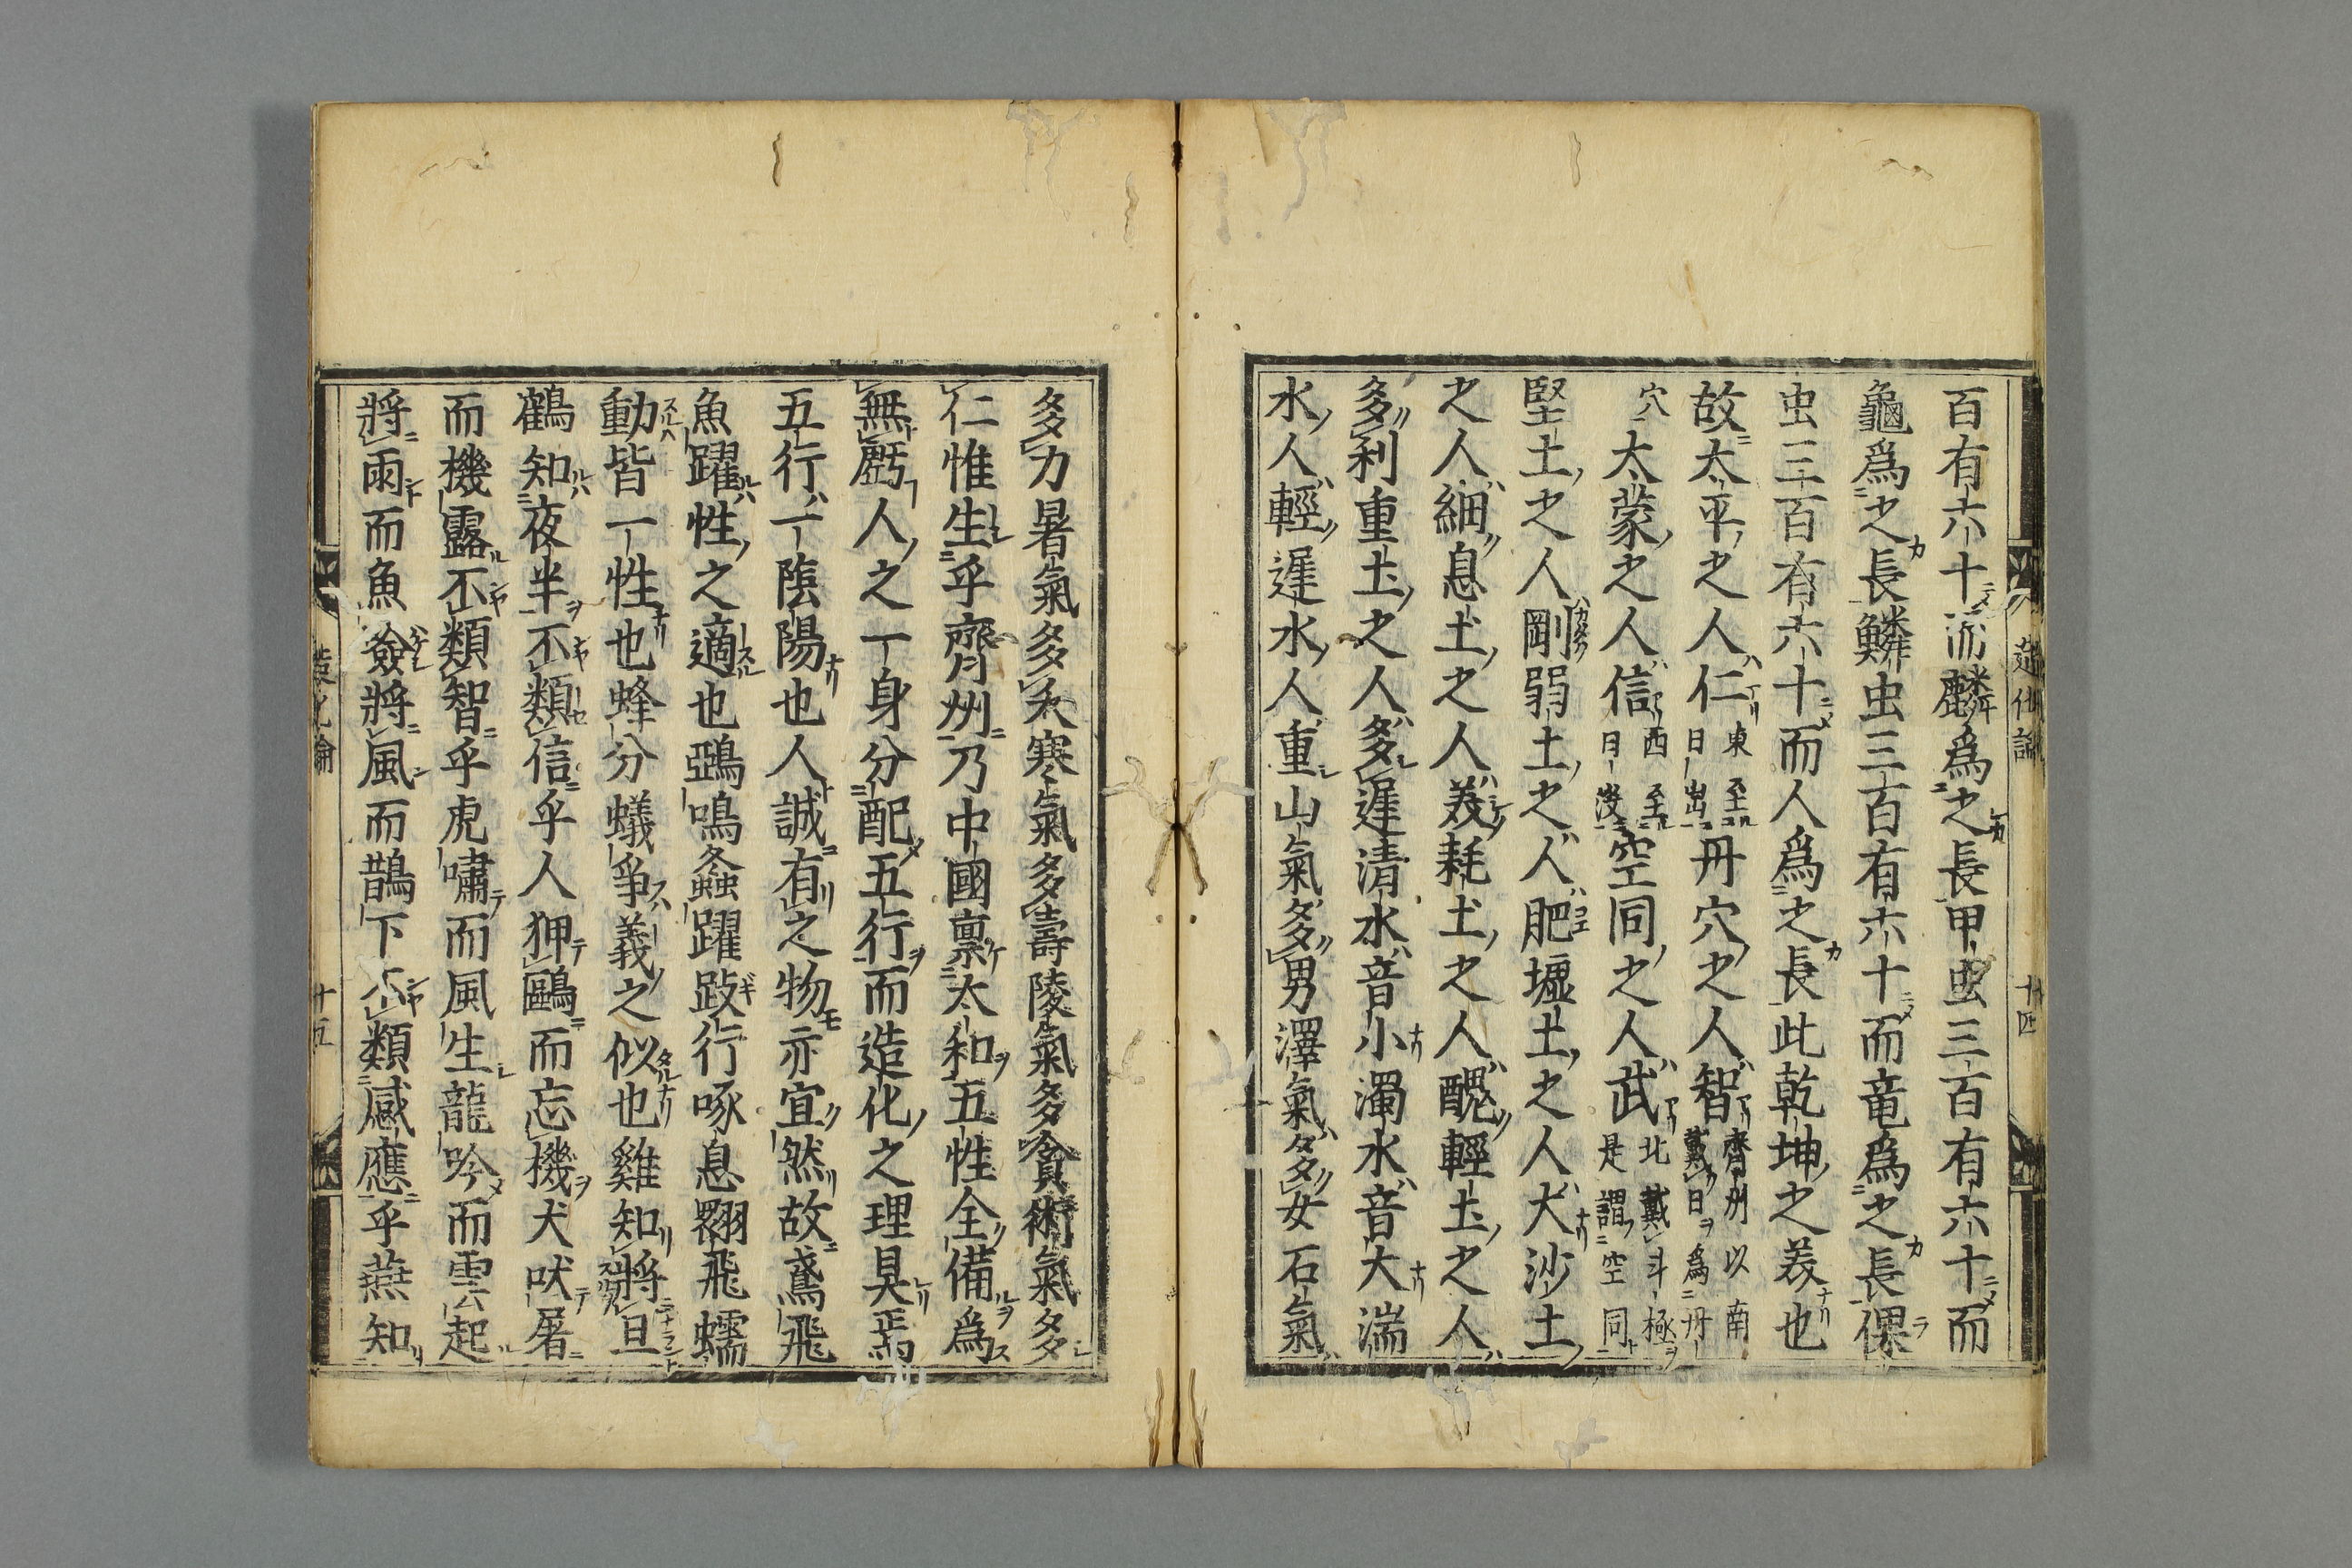 百有六十而麟爲之長甲虫三百有六十而
龜爲之長鱗虫三百有六十而竜爲之長倮
虫三百有六十而人爲之長此乾坤之美也
故太平之人仁東至日出丹穴之人智齊州以南戴日爲丹
穴太蒙之人信西至日没空同之人武北戴斗極是謂空同
堅土之人剛弱土之人肥壚土之人大沙土
之人細息土之人美耗土之人醜輕土之人
多利重土之人多遲清水音小濁水音大湍
水人輕遲水人重山氣多男澤氣多女石氣
多力暑氣多夭寒氣多壽陵氣多貪術氣多
仁惟生乎齊州乃中國禀太和五性全備爲
無虧人之一身分配五行而造化之理具焉
五行一陰陽也人誠有之物亦宜然故鳶飛
魚躍性之適也鵶鳴螽躍跂行啄息翾飛蠕
動皆一性也蜂分蟻爭義之似也雞知將旦
鶴知夜半不類信乎人狎鷗而忘機犬吠屠
而機露不類智乎虎嘯而風生龍吟而雲起
將雨而魚噞將風而鵲下不類感應乎燕知
造化論
十四
造化論
十五